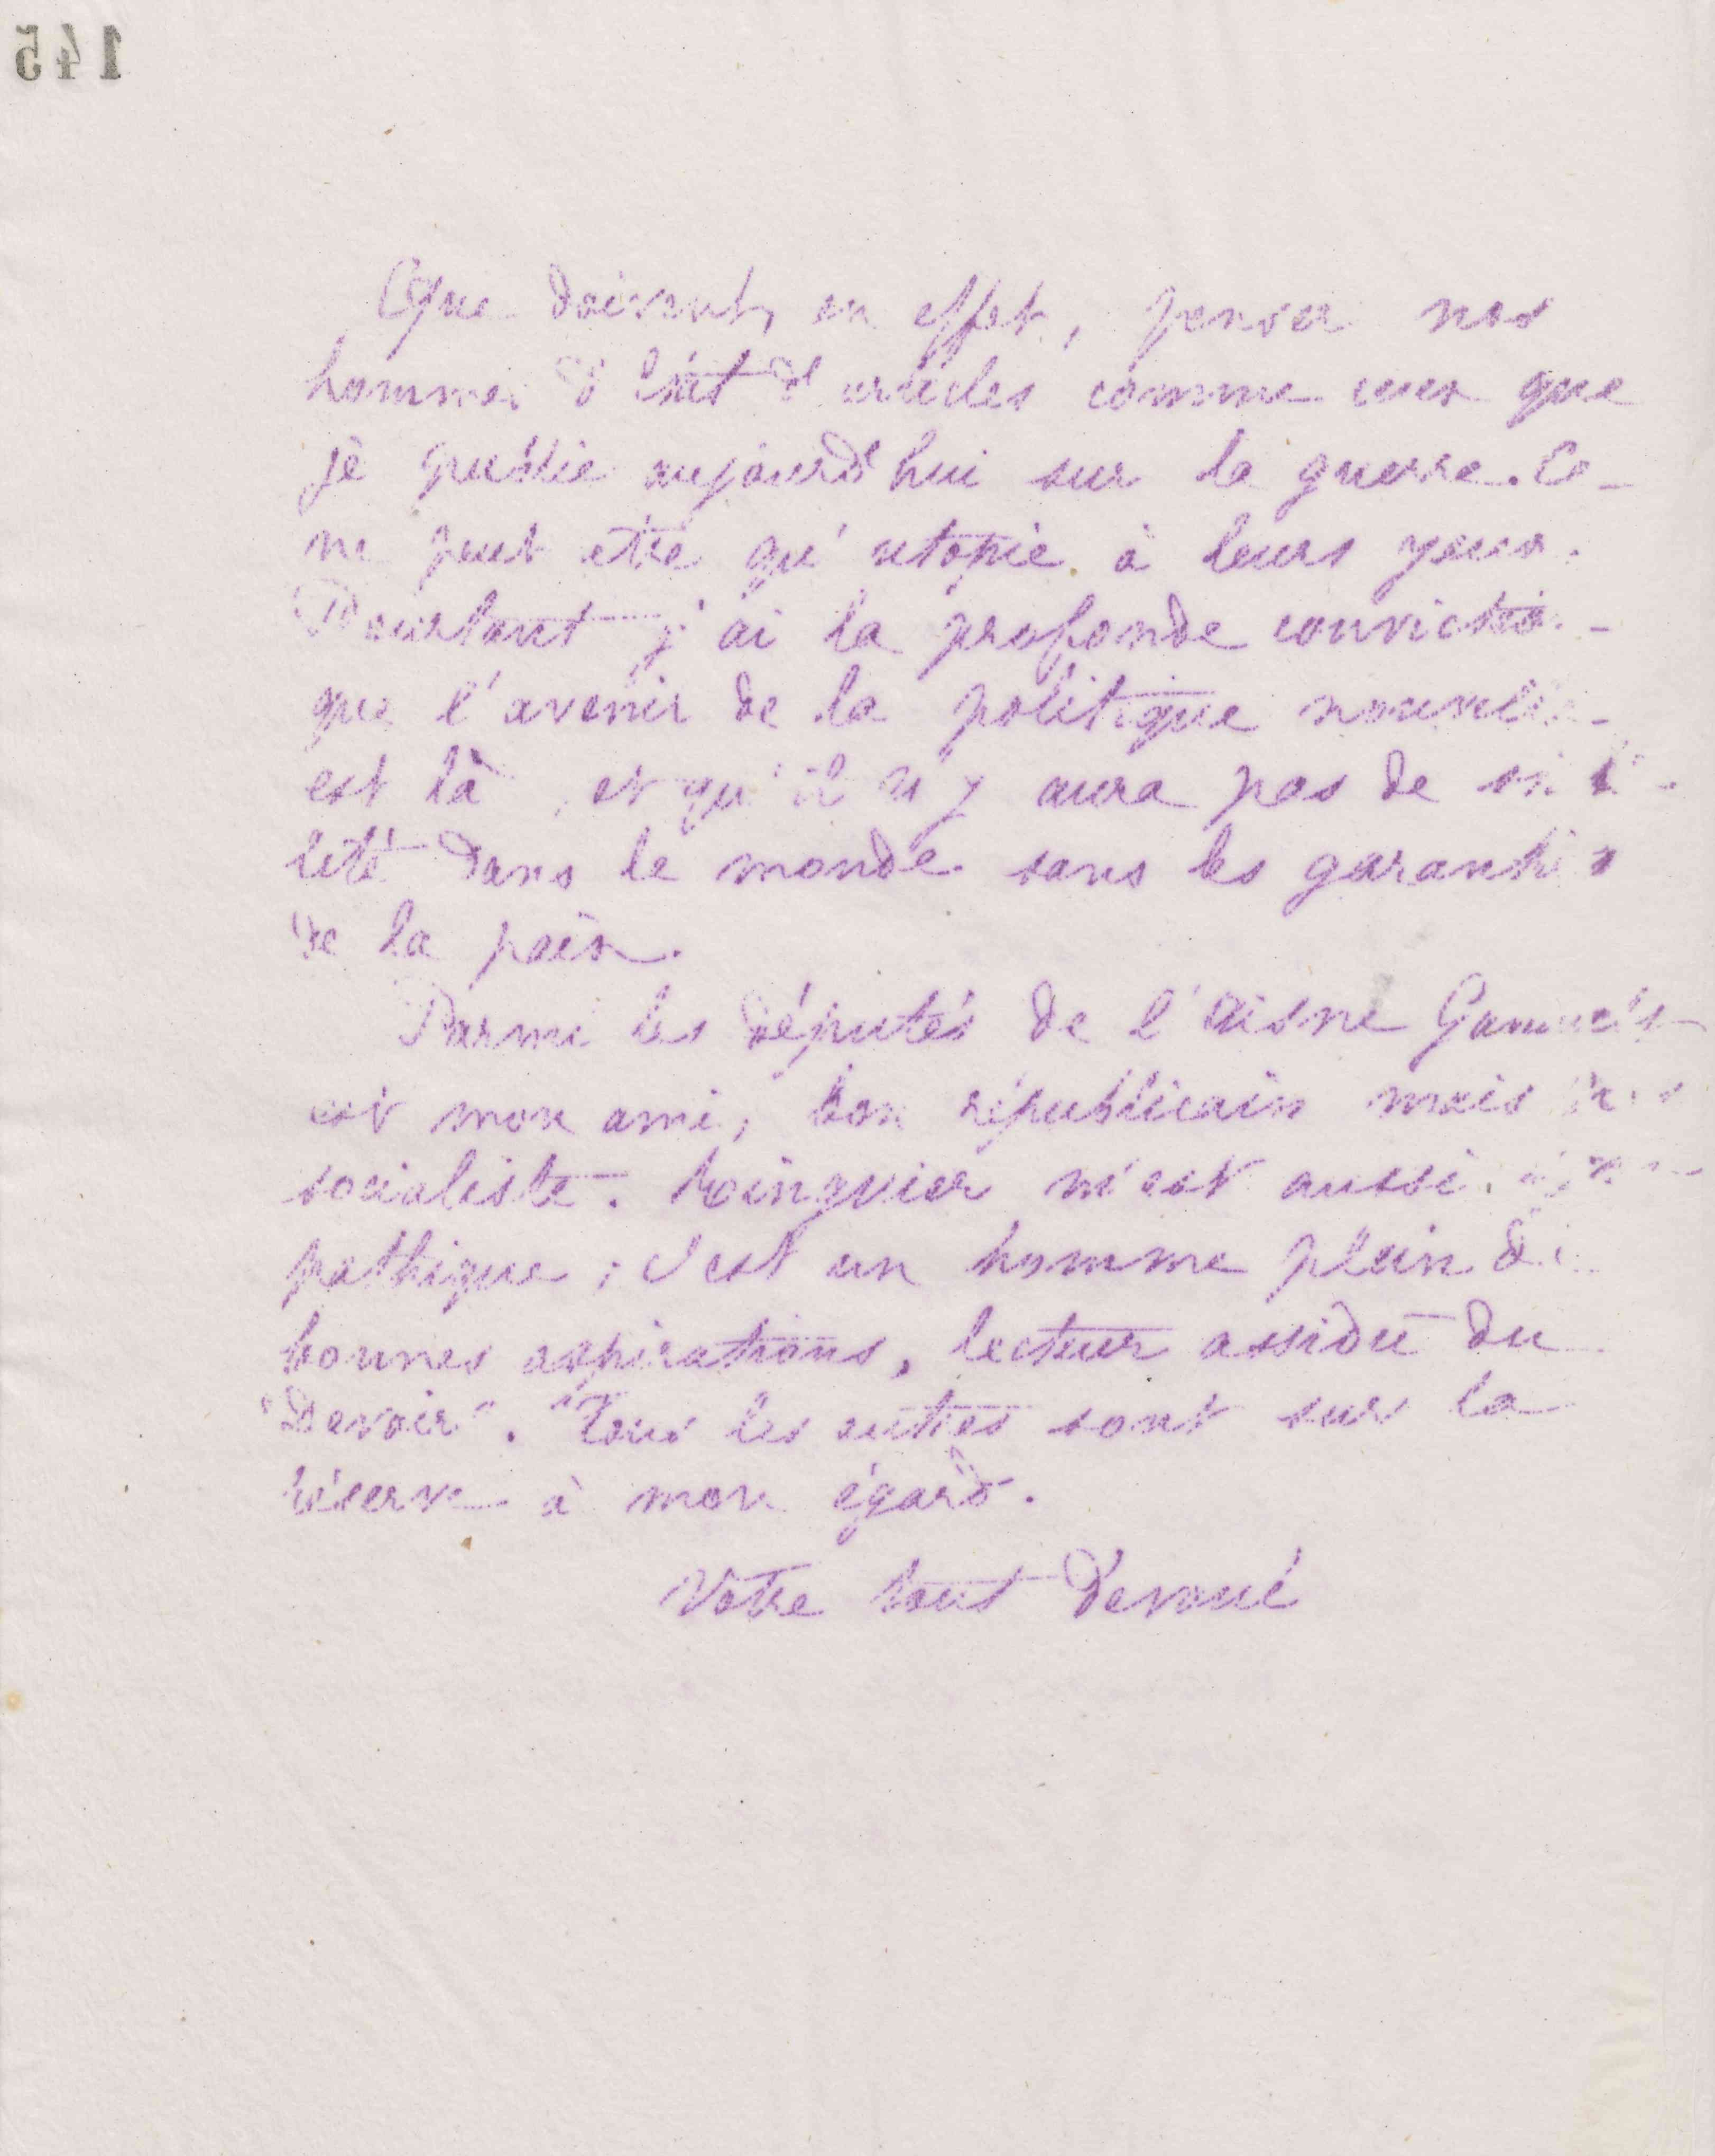 145
Que doivent, en effet, penser nos
hommes d'état d'articles comme ceux que
je publie aujourd'hui sur la guerre. Ce
ne peut etre qu'utopie à leurs yeux.
Pourtant j'ai la profonde convictio
que l'avenir de la politique nouvelle
est là, et qu'il n'y aura pas de
lité dans le monde sans les garanties
de la paix.
Parmi les députés de l'Aisne
est mon ami, bon républicain mais
socialiste. Ringuier m'est aussi
pathique ; c'est un homme plein de
bonnes aspirations, lecteur assidu du
"Devoir". Tous les autres sont sur la
réserve à mon égard.
Votre tout dévoué